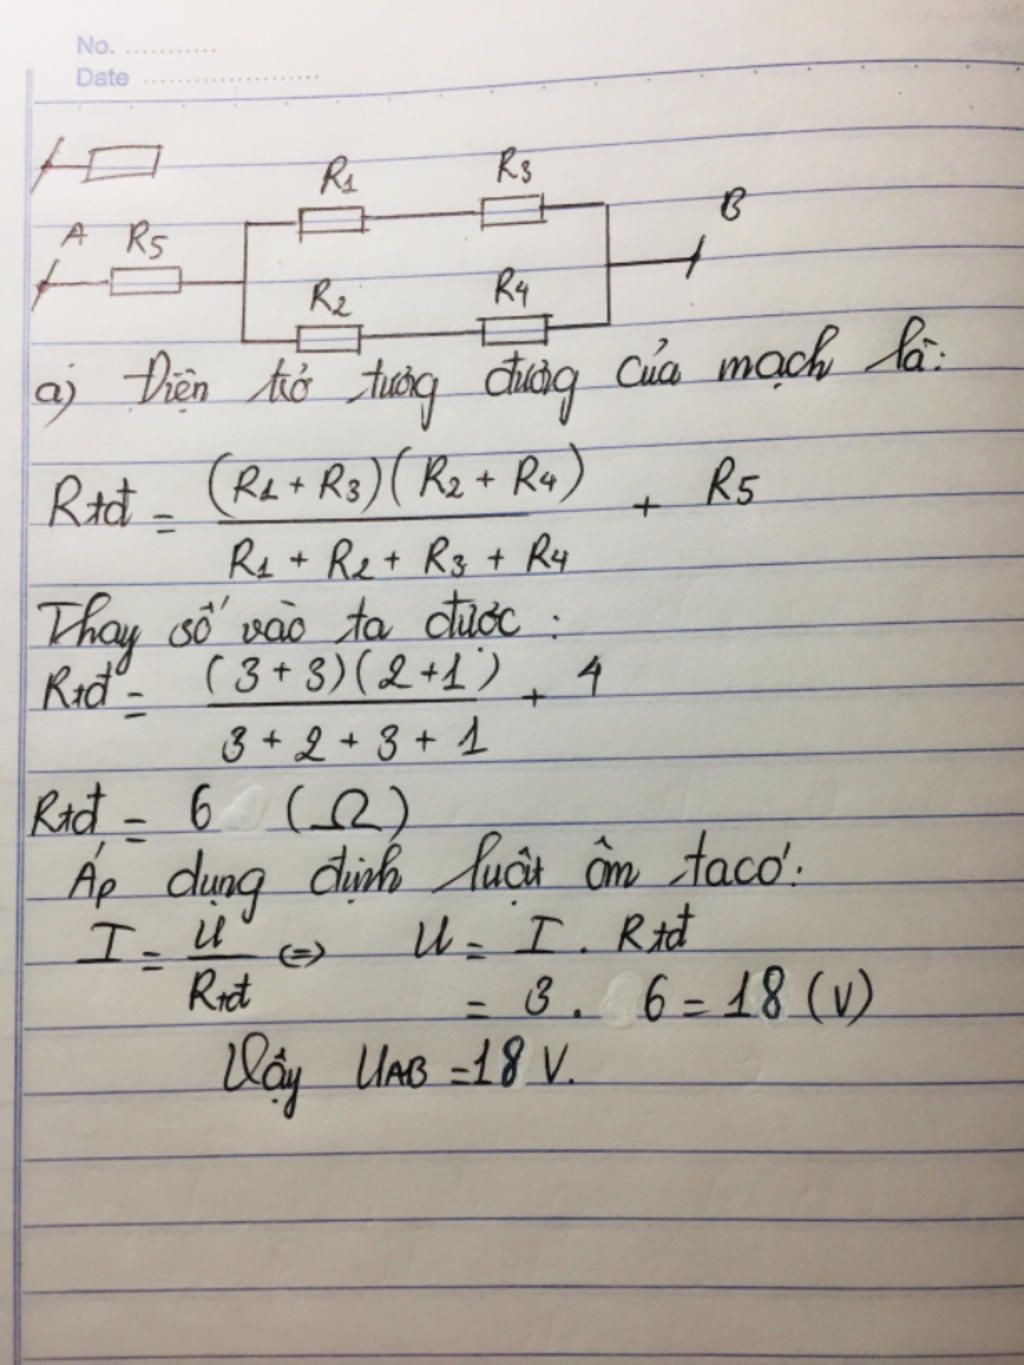 No. ............
Date ........................
R1 R3
A R5 B
R2 R4
a) Điện trở tương đương của mạch là:
Rtđ = (R1 + R3)(R2 + R4) / R1 + R2 + R3 + R4 + R5
Thay số vào ta được :
Rtđ = (3 + 3)(2 + 1) / 3 + 2 + 3 + 1 + 4
Rtđ = 6 (Ω)
Áp dụng định luật ôm ta có:
I = U / Rtđ <=> U = I . Rtđ
= 3 . 6 = 18 (V)
Vậy UAB = 18 V.